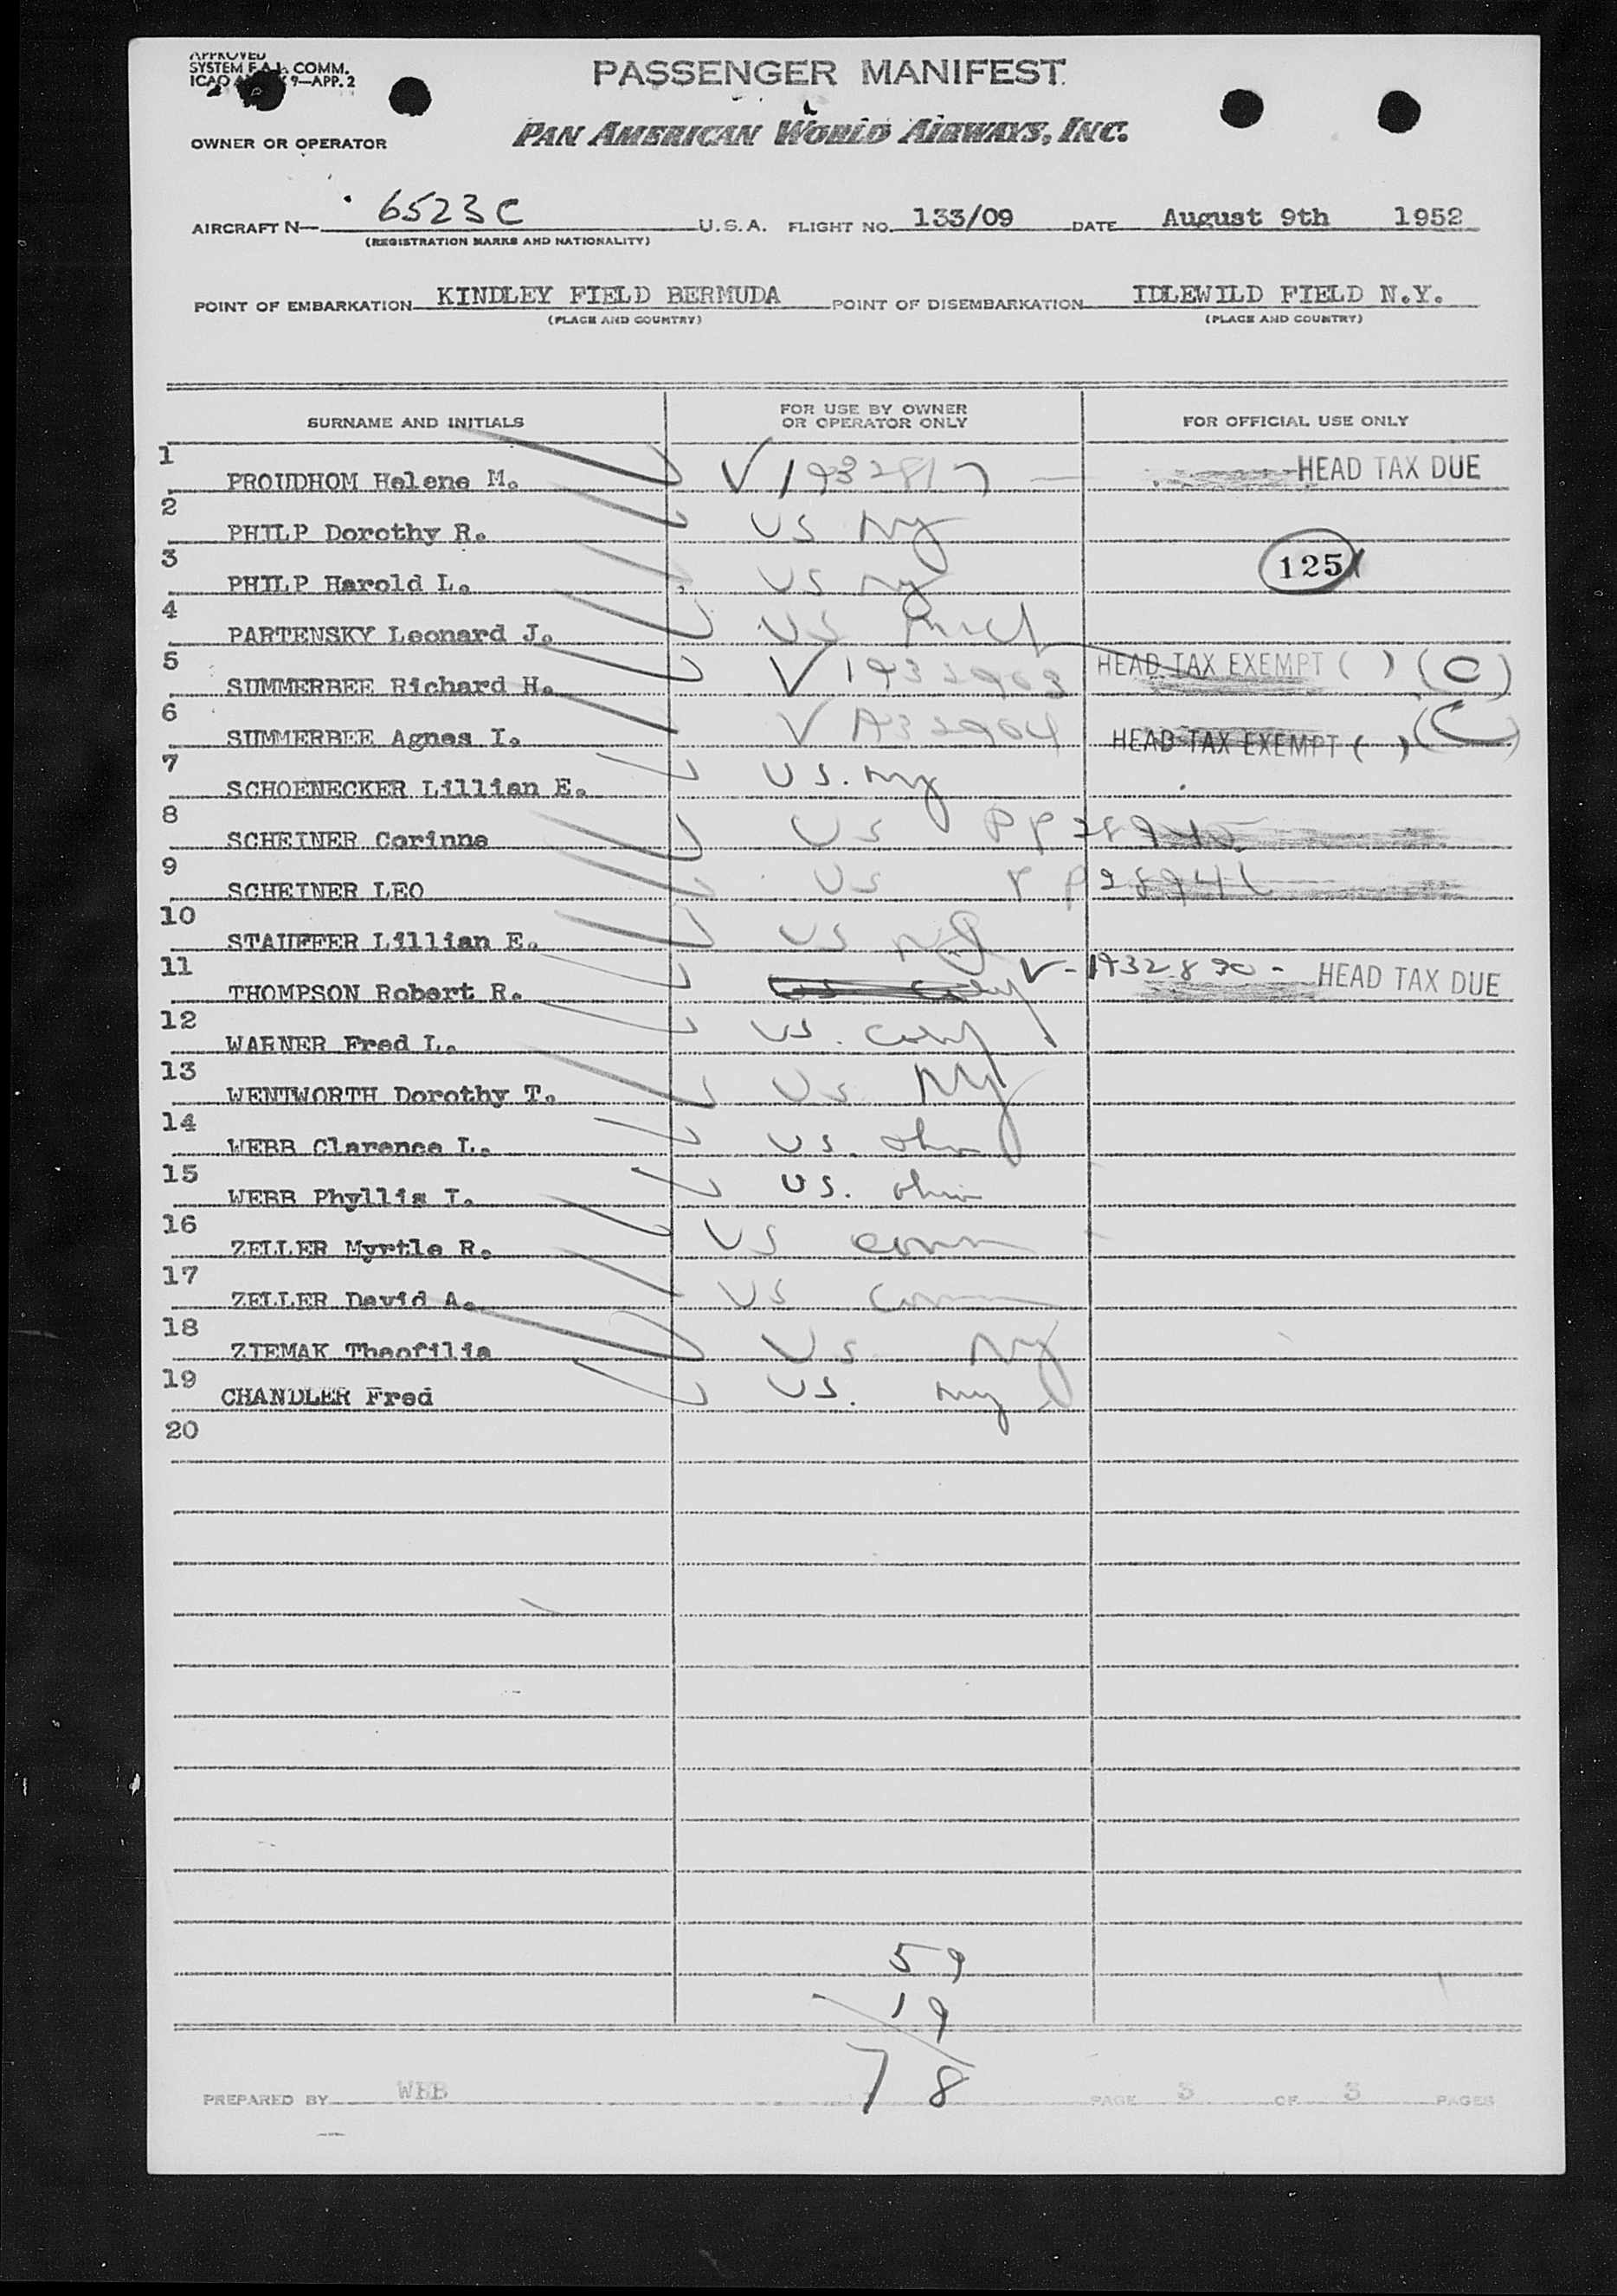 APPROVED
SYSTEM F.A.L. COMM.
ICAO 9—APP. 2
PASSENGER MANIFEST
OWNER OR OPERATOR PAN AMERICAN WORLD AIRWAYS, INC.
AIRCRAFT N— 6523C U.S.A. FLIGHT NO. 133/09 DATE August 9th 1952
(REGISTRATION MARKS AND NATIONALITY)
POINT OF EMBARKATION KINDLEY FIELD BERMUDA POINT OF DISEMBARKATION IDLEWILD FIELD N.Y.
(PLACE AND COUNTRY) (PLACE AND COUNTRY)
SURNAME AND INITIALS FOR USE BY OWNER OR OPERATOR ONLY FOR OFFICIAL USE ONLY
1 PROUDHOM Helene M. V1932817 HEAD TAX DUE
2 PHILP Dorothy R. US Ny
3 PHILP Harold L. US Ny 125
4 PARTENSKY Leonard J. US
5 SUMMERBEE Richard H. V 1932903 HEAD TAX EXEMPT ( ) (C)
6 SUMMERBEE Agnes I. V 1932904 HEAD TAX EXEMPT ( ) (C)
7 SCHOENECKER Lillian E. US. Ny
8 SCHEINER Corinne US PP 28940
9 SCHEINER LEO US PP 28941
10 STAUFFER Lillian E. US NJ
11 THOMPSON Robert R. V-1932890- HEAD TAX DUE
12 WARNER Fred L. US.
13 WENTWORTH Dorothy T. US Ny
14 WEBB Clarence L. US. Ohio
15 WEBB Phyllis I. US. Ohio
16 ZELLER Myrtle R. US Conn
17 ZELLER David A. US Conn
18 ZIEMAK Theofilia US Ny
19 CHANDLER Fred US. Ny
20
59
19
78
PREPARED BY WEB PAGE 3 OF 3 PAGES